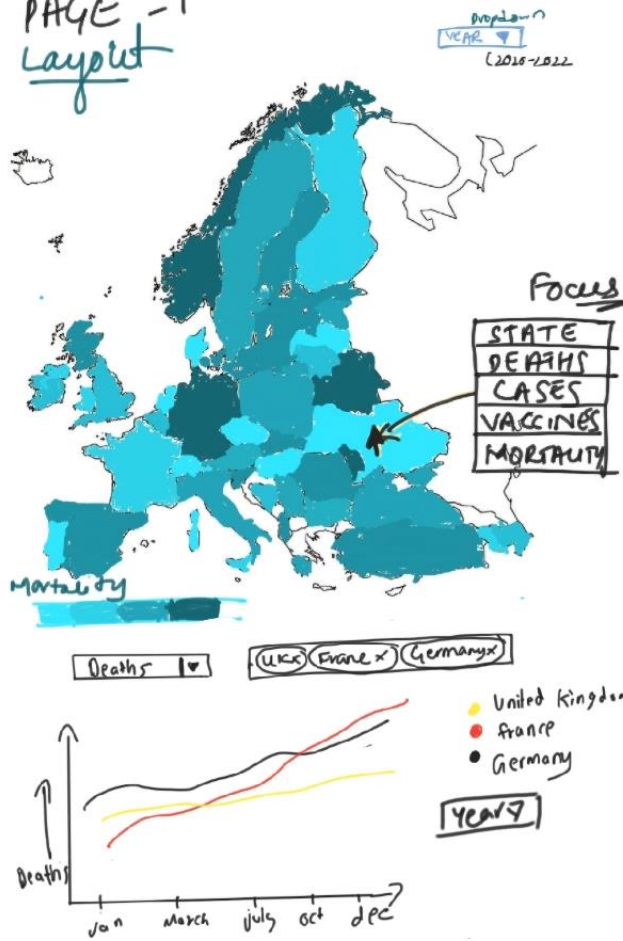 PAGE - 1
Layout
Dropdown
YEAR ▼
(2020-2022
Focus
STATE
DEATHS
CASES
VACCINES
MORTALITY
Mortality
Deaths ▼
UKx Francex Germanyx
United Kingdom
france
Germany
year ▽
Deaths
Jan March july oct dec